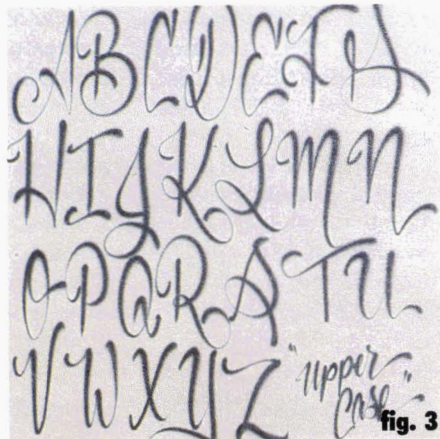 ABCDEFG
HIJKLMN
OPQRSTU
VWXYZ "upper
case"
fig. 3